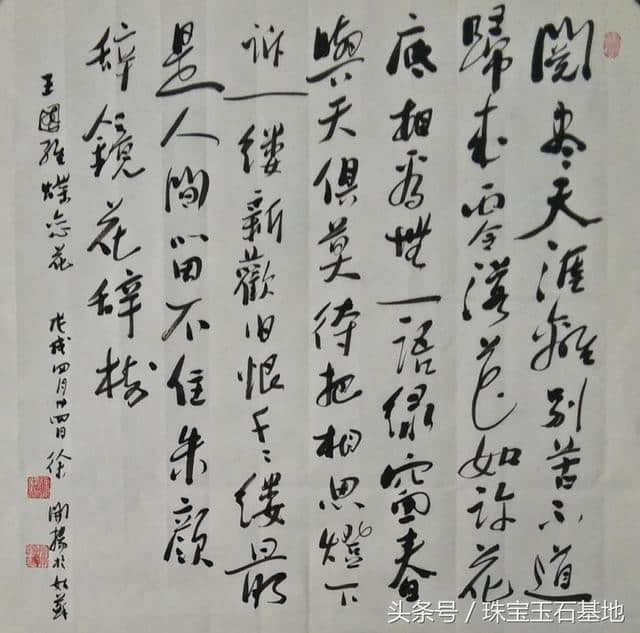 閱盡天涯離别苦不道
歸来零落花如許花
底相看無一語緑窗春
與天俱莫待把相思燈下
訴一缕新歡旧恨千々缕最
是人間留不住朱顔
辞鏡花辞樹
王國維蝶恋花 戊戌四月廿四日徐開揚於姑蘇
头条号／珠宝玉石基地